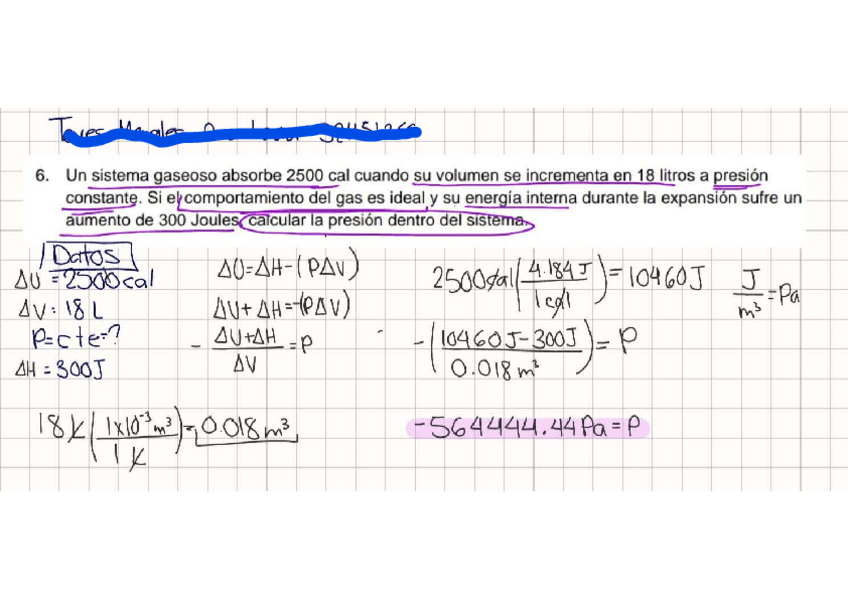 6. Un sistema gaseoso absorbe 2500 cal cuando su volumen se incrementa en 18 litros a presión
constante. Si el comportamiento del gas es ideal y su energía interna durante la expansión sufre un
aumento de 300 Joules, calcular la presión dentro del sistema.
Datos
ΔU = 2500 cal
ΔV: 18 L
P=cte=?
ΔH = 300J
18L (1x10⁻³ m³ / 1L) = 0.018 m³
ΔU=ΔH-(PΔV)
ΔU+ΔH=-(PΔV)
- ΔU+ΔH / ΔV = P
2500cal (4.184J / 1cal) = 10460J
J / m³ = Pa
-(10460J-300J / 0.018m³) = P
-564444.44Pa=P